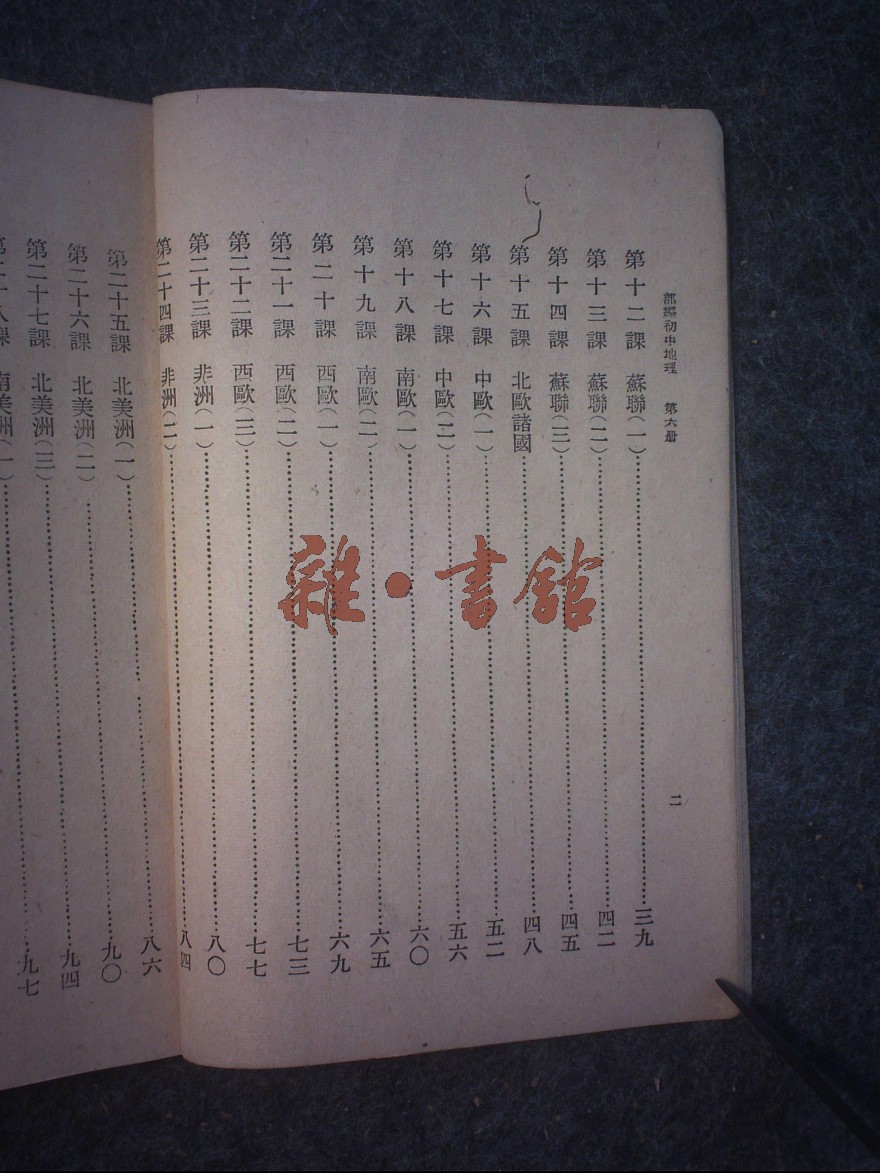 部編初中地理　第六册
二
第十二課　蘇聯(一)……三九
第十三課　蘇聯(二)……四二
第十四課　蘇聯(三)……四五
第十五課　北歐諸國……四八
第十六課　中歐(一)……五二
第十七課　中歐(二)……五六
第十八課　南歐(一)……六〇
第十九課　南歐(二)……六五
第二十課　西歐(一)……六九
第二十一課　西歐(二)……七三
第二十二課　西歐(三)……七七
第二十三課　非洲(一)……八〇
第二十四課　非洲(二)……八四
第二十五課　北美洲(一)……八六
第二十六課　北美洲(二)……九〇
第二十七課　北美洲(三)……九四
第二十八課　南美洲(一)……九七
雜·書館